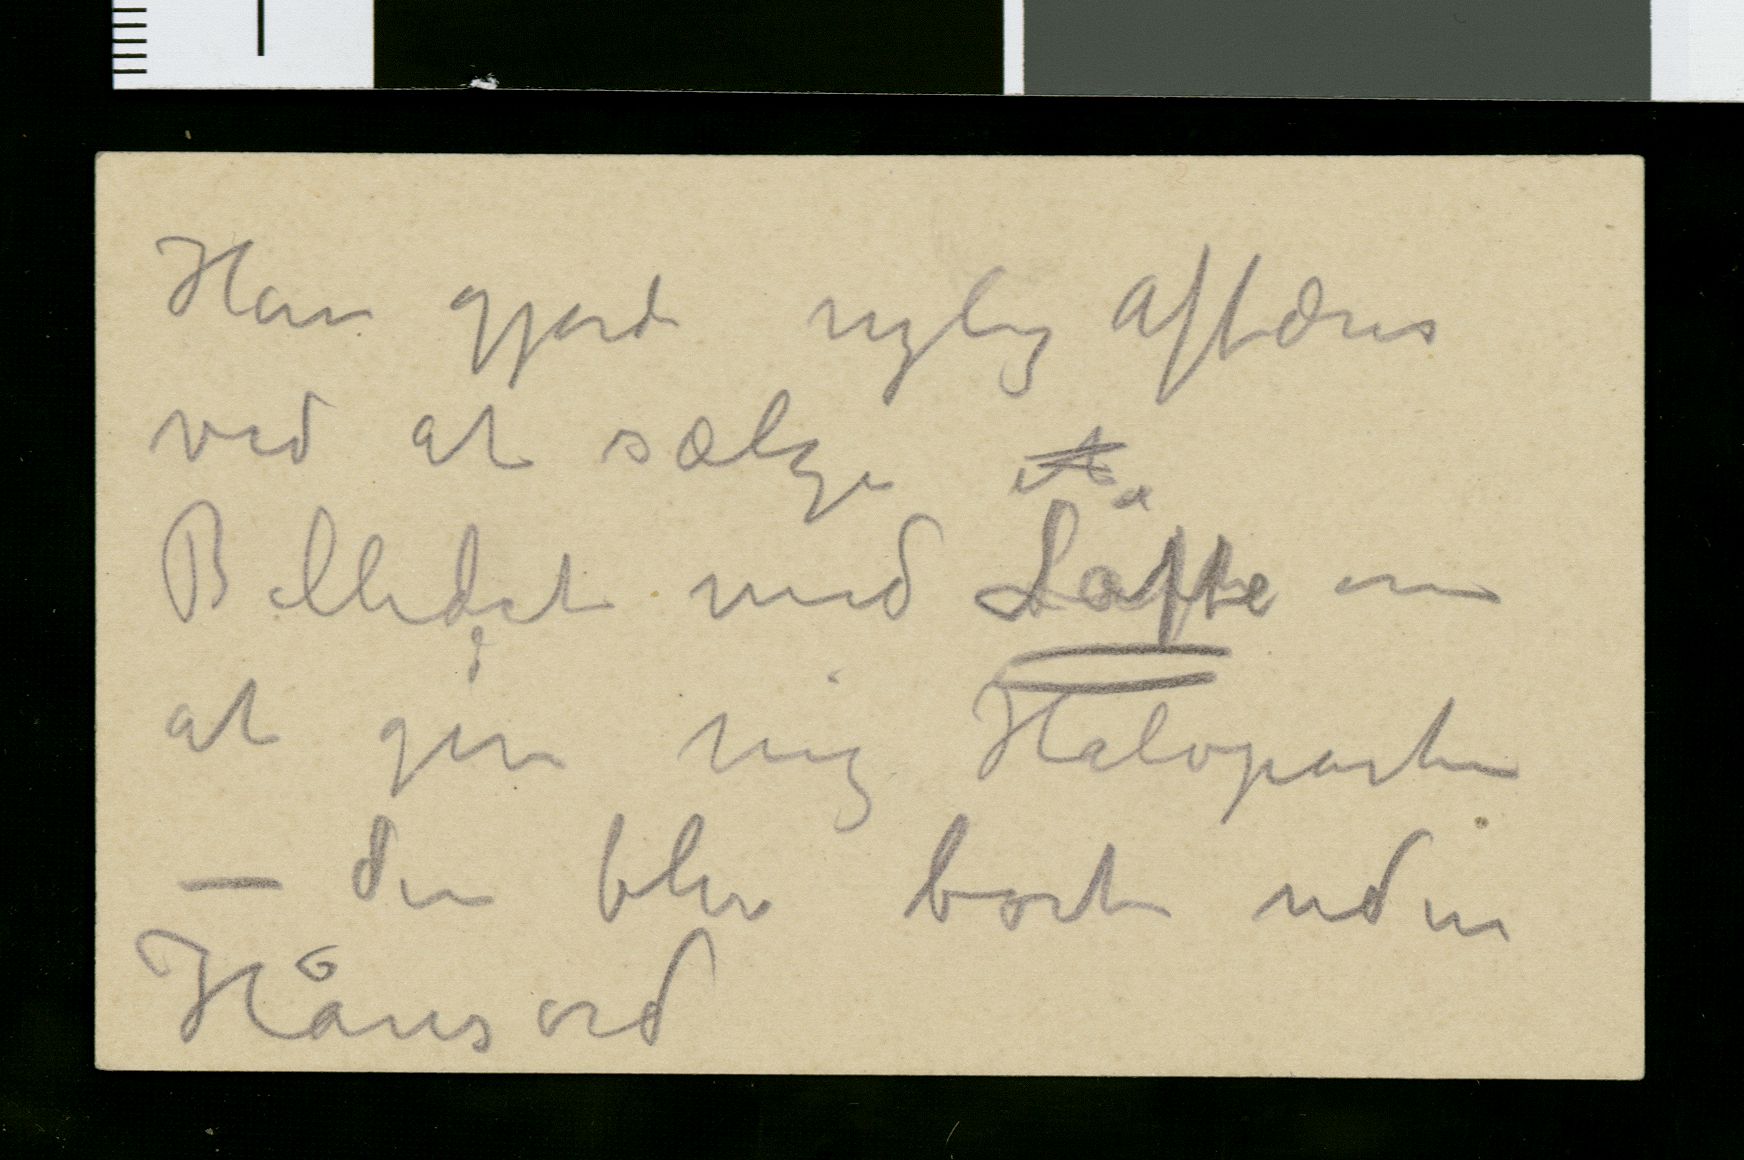 Han gjorde nylig Affæres
ved at sælge
Billedet med Løfte om
at give mig Halvparten
— den blev borte uden
Hånsord